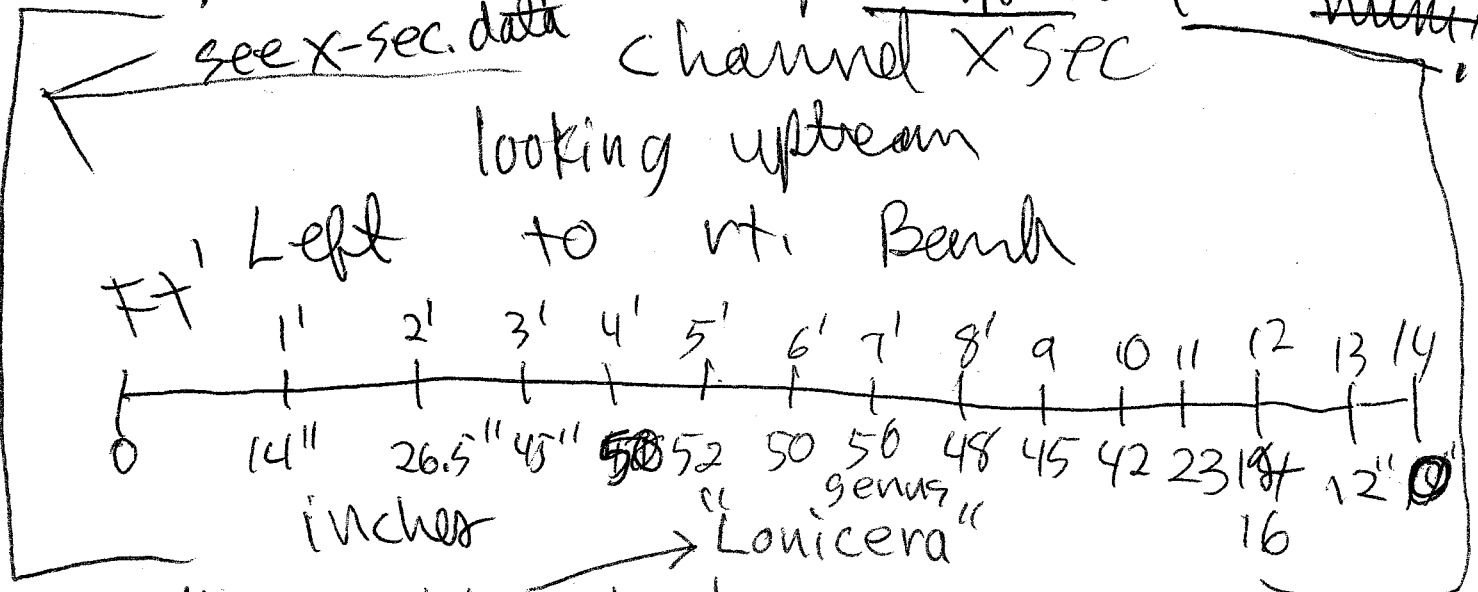 see x-sec. data
channel XSec
looking upstream
Left to rt. Bank
Ft'
1' 2' 3' 4' 5' 6' 7' 8' 9 10 11 12 13 14
0 14" 26.5" 45" 50 52 50 50 48 45 42 23 12" 0
genus
inches "Lonicera" 16